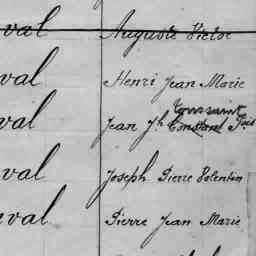 val Auguste Victor
val Henri Jean Marie
Toussaint
val Jean Jh Constant Fois
val Joseph Pierre Polentin
eval Pierre Jean Marie